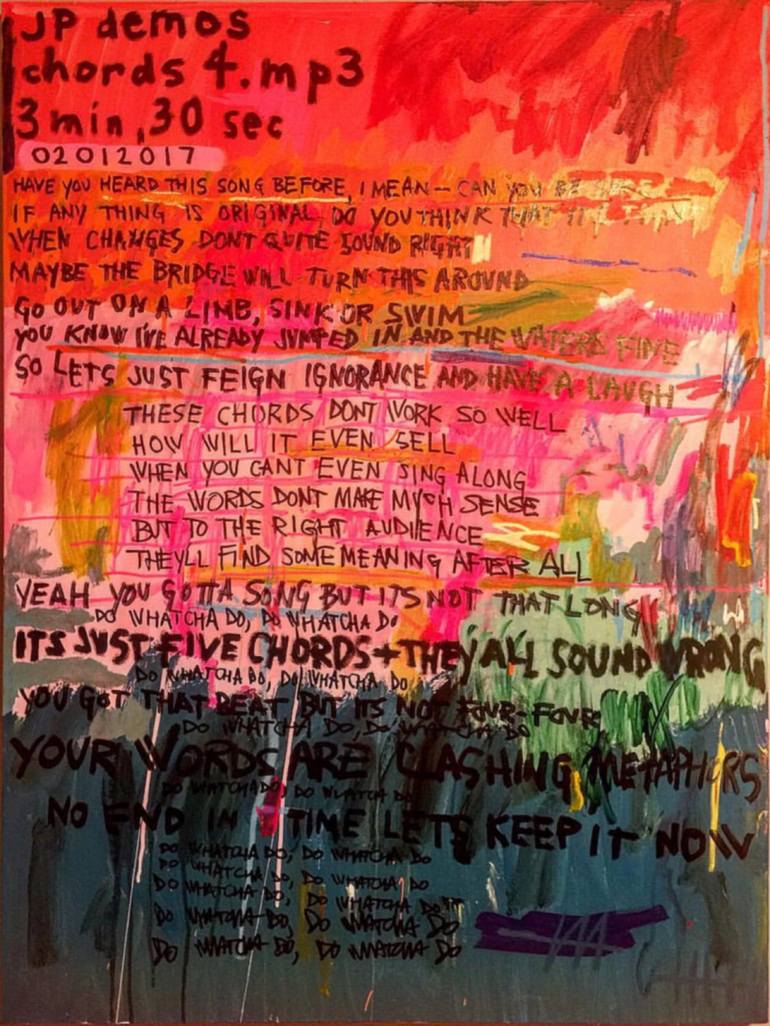 JP demos
chords 4.mp3
3 min, 30 sec
02012017
HAVE YOU HEARD THIS SONG BEFORE, I MEAN — CAN YOU BE
IF ANY THING IS ORIGINAL, DO YOU THINK THAT
WHEN CHANGES DONT QUITE SOUND RIGHT
MAYBE THE BRIDGE WILL TURN THIS AROUND
GO OUT ON A LIMB, SINK OR SWIM
YOU KNOW I'VE ALREADY JUMPED IN AND THE WATERS FINE
SO LETS JUST FEIGN IGNORANCE AND HAVE A LAUGH
THESE CHORDS DONT WORK SO WELL
HOW WILL IT EVEN SELL
WHEN YOU CANT EVEN SING ALONG
THE WORDS DONT MAKE MUCH SENSE
BUT TO THE RIGHT AUDIENCE
THEYLL FIND SOME MEANING AFTER ALL
YEAH YOU GOTTA SONG BUT ITS NOT THAT LONG
DO WHATCHA DO, DO WHATCHA DO
ITS JUST FIVE CHORDS + THEY ALL SOUND WRONG
DO WHATCHA DO, DO WHATCHA DO
YOU GOT THAT BEAT BUT ITS NOT FOUR-FOUR
DO WHATCHA DO, DO WHATCHA DO
YOUR WORDS ARE CLASHING METAPHORS
DO WHATCHA DO, DO WHATCHA DO
NO END IN TIME LETS KEEP IT NOW
DO WHATCHA DO, DO WHATCHA DO
DO WHATCHA DO, DO WHATCHA DO
DO WHATCHA DO, DO WHATCHA DO
DO WHATCHA DO, DO WHATCHA DO
DO WHATCHA DO, DO WHATCHA DO